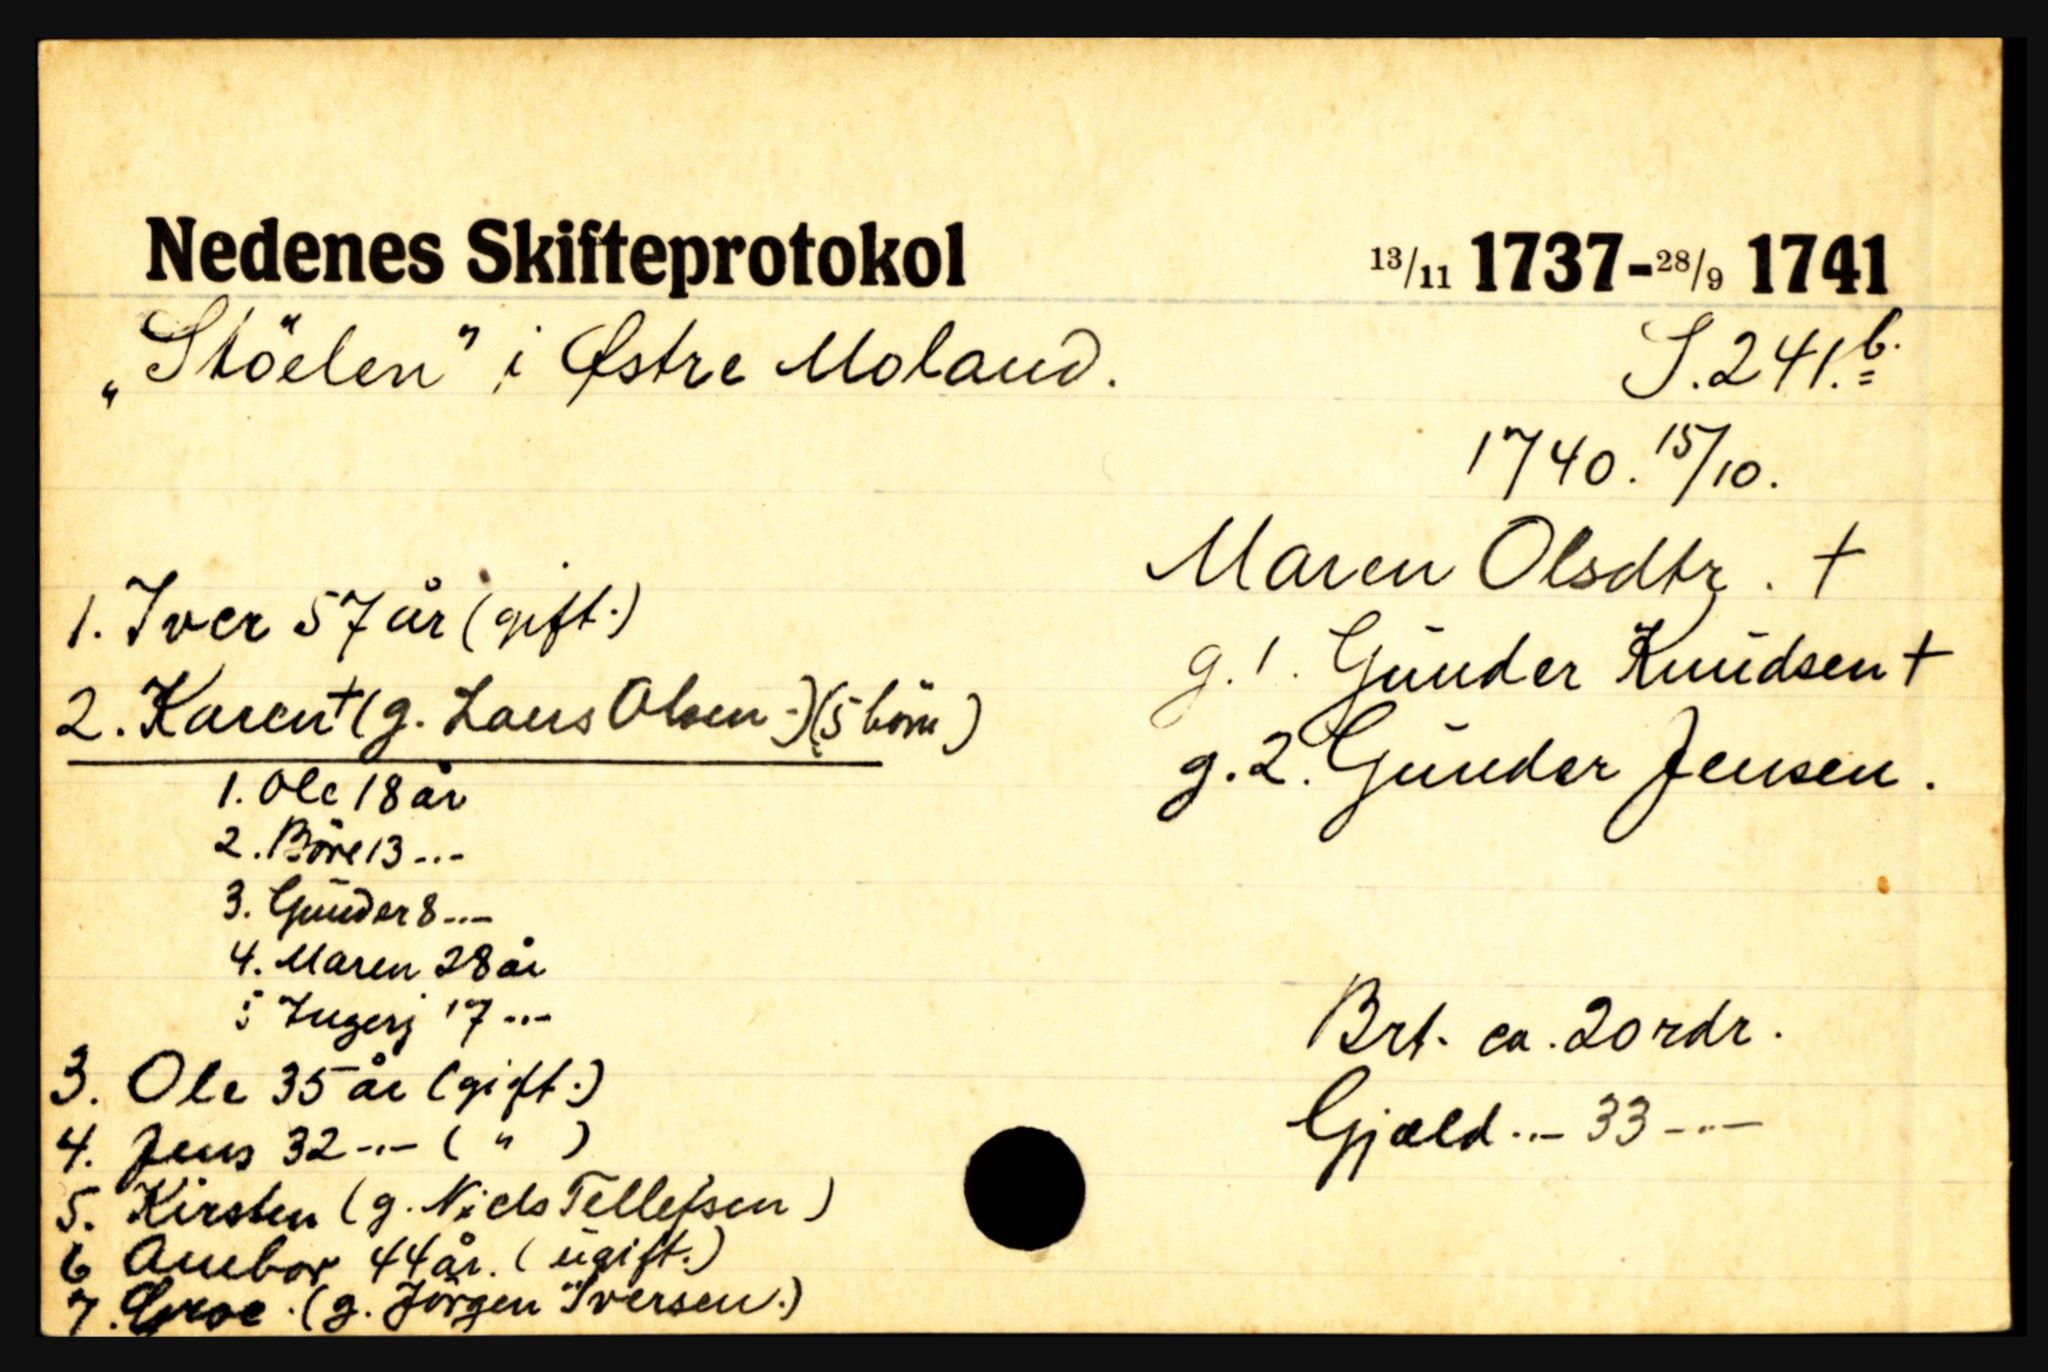 Nedenes Skifteprotokol 13/11 1737-28/9 1741
„Stöelen" i Østre Moland. S. 241.b.
1740. 15/10.
Maren Olsdtr. †
g. 1. Gunder Knudsen †
g. 2. Gunder Jensen.
1. Iver 57 år (gift.)
2. Karen † (g. Laus Olsen.) (5 börn)
1. Ole 18 år
2. Böre 13 -„-
3. Gunder 8 -„-
4. Maren 28 år
5 Ingerj 17 -„-
3. Ole 35 år (gift.)
4. Jens 32 -„- ( " )
5. Kirsten (g. Niels Tellefsen)
6 Anebor 44 år. (ugift.)
7. Groe. (g. Jörgen Iversen.)
Brt. ca. 20 rdr.
Gjæld -„- 33 -„-